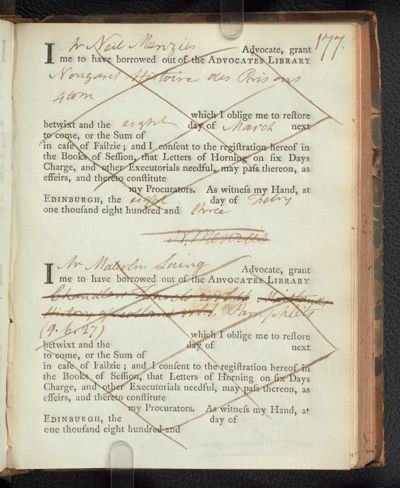 177.
I Mr Neil Menzies Advocate, grant
me to have borrowed out of the ADVOCATES LIBRARY
Nougaret Histoire des Prisons
4 tom
which I oblige me to reſtore
betwixt and the eight day of March next
to come, or the Sum of
in caſe of Failzie; and I conſent to the regiſtration hereof in
the Books of Seſſion, that Letters of Horning on ſix Days
Charge, and other Executorials needful, may paſs thereon, as
effeirs, and thereto conſtitute
my Procurators. As witneſs my Hand, at
EDINBURGH, the eight day of Febry
one thouſand eight hundred and three
N. Menzies
I Mr Malcolm Laing Advocate, grant
me to have borrowed out of the ADVOCATES LIBRARY
Pamphlets
(9.6.27)
which I oblige me to reſtore
betwixt and the day of next
to come, or the Sum of
in caſe of Failzie; and I conſent to the regiſtration hereof in
the Books of Seſſion, that Letters of Horning on ſix Days
Charge, and other Executorials needful, may paſs thereon, as
effeirs, and thereto conſtitute
my Procurators. As witneſs my Hand, at
EDINBURGH, the day of
one thouſand eight hundred and